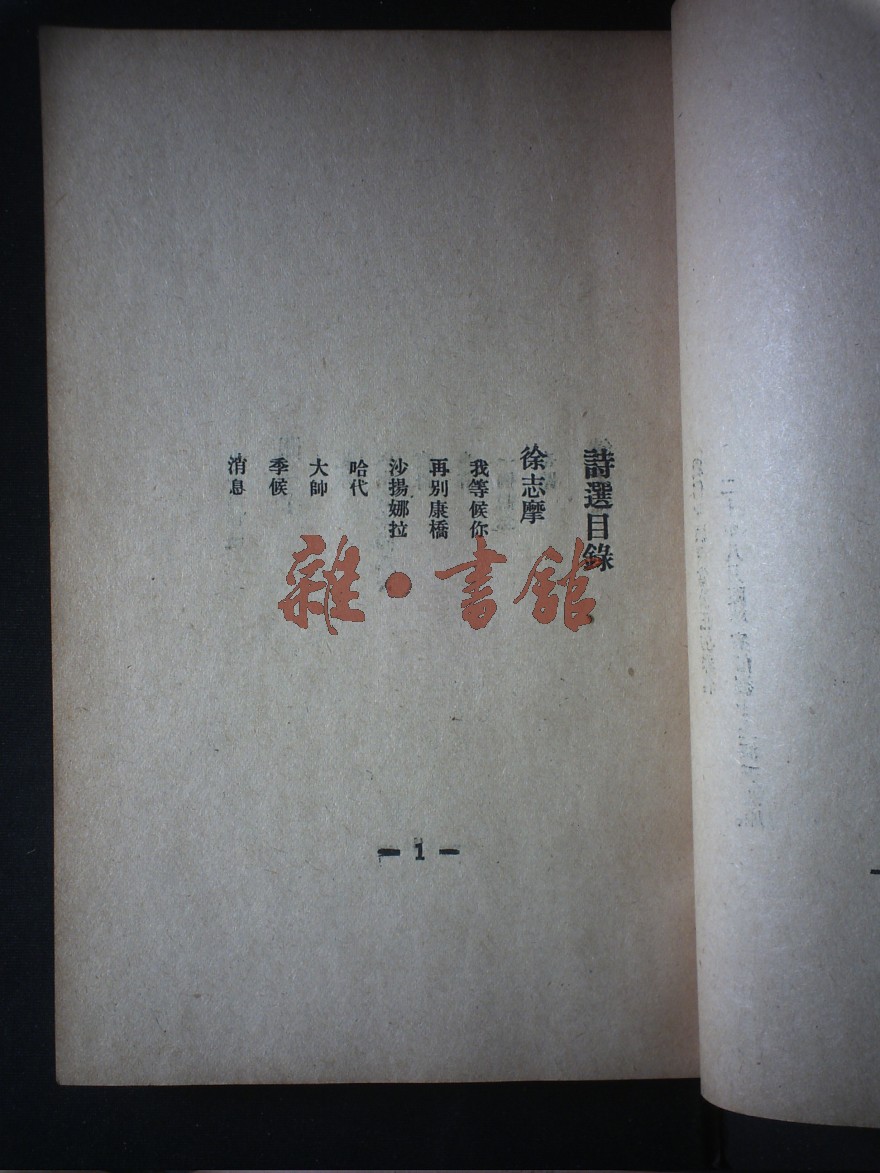 詩選目錄
徐志摩
我等候你
再別康橋
沙揚娜拉
哈代
大帥
季候
消息
雜·書館
— 1 —